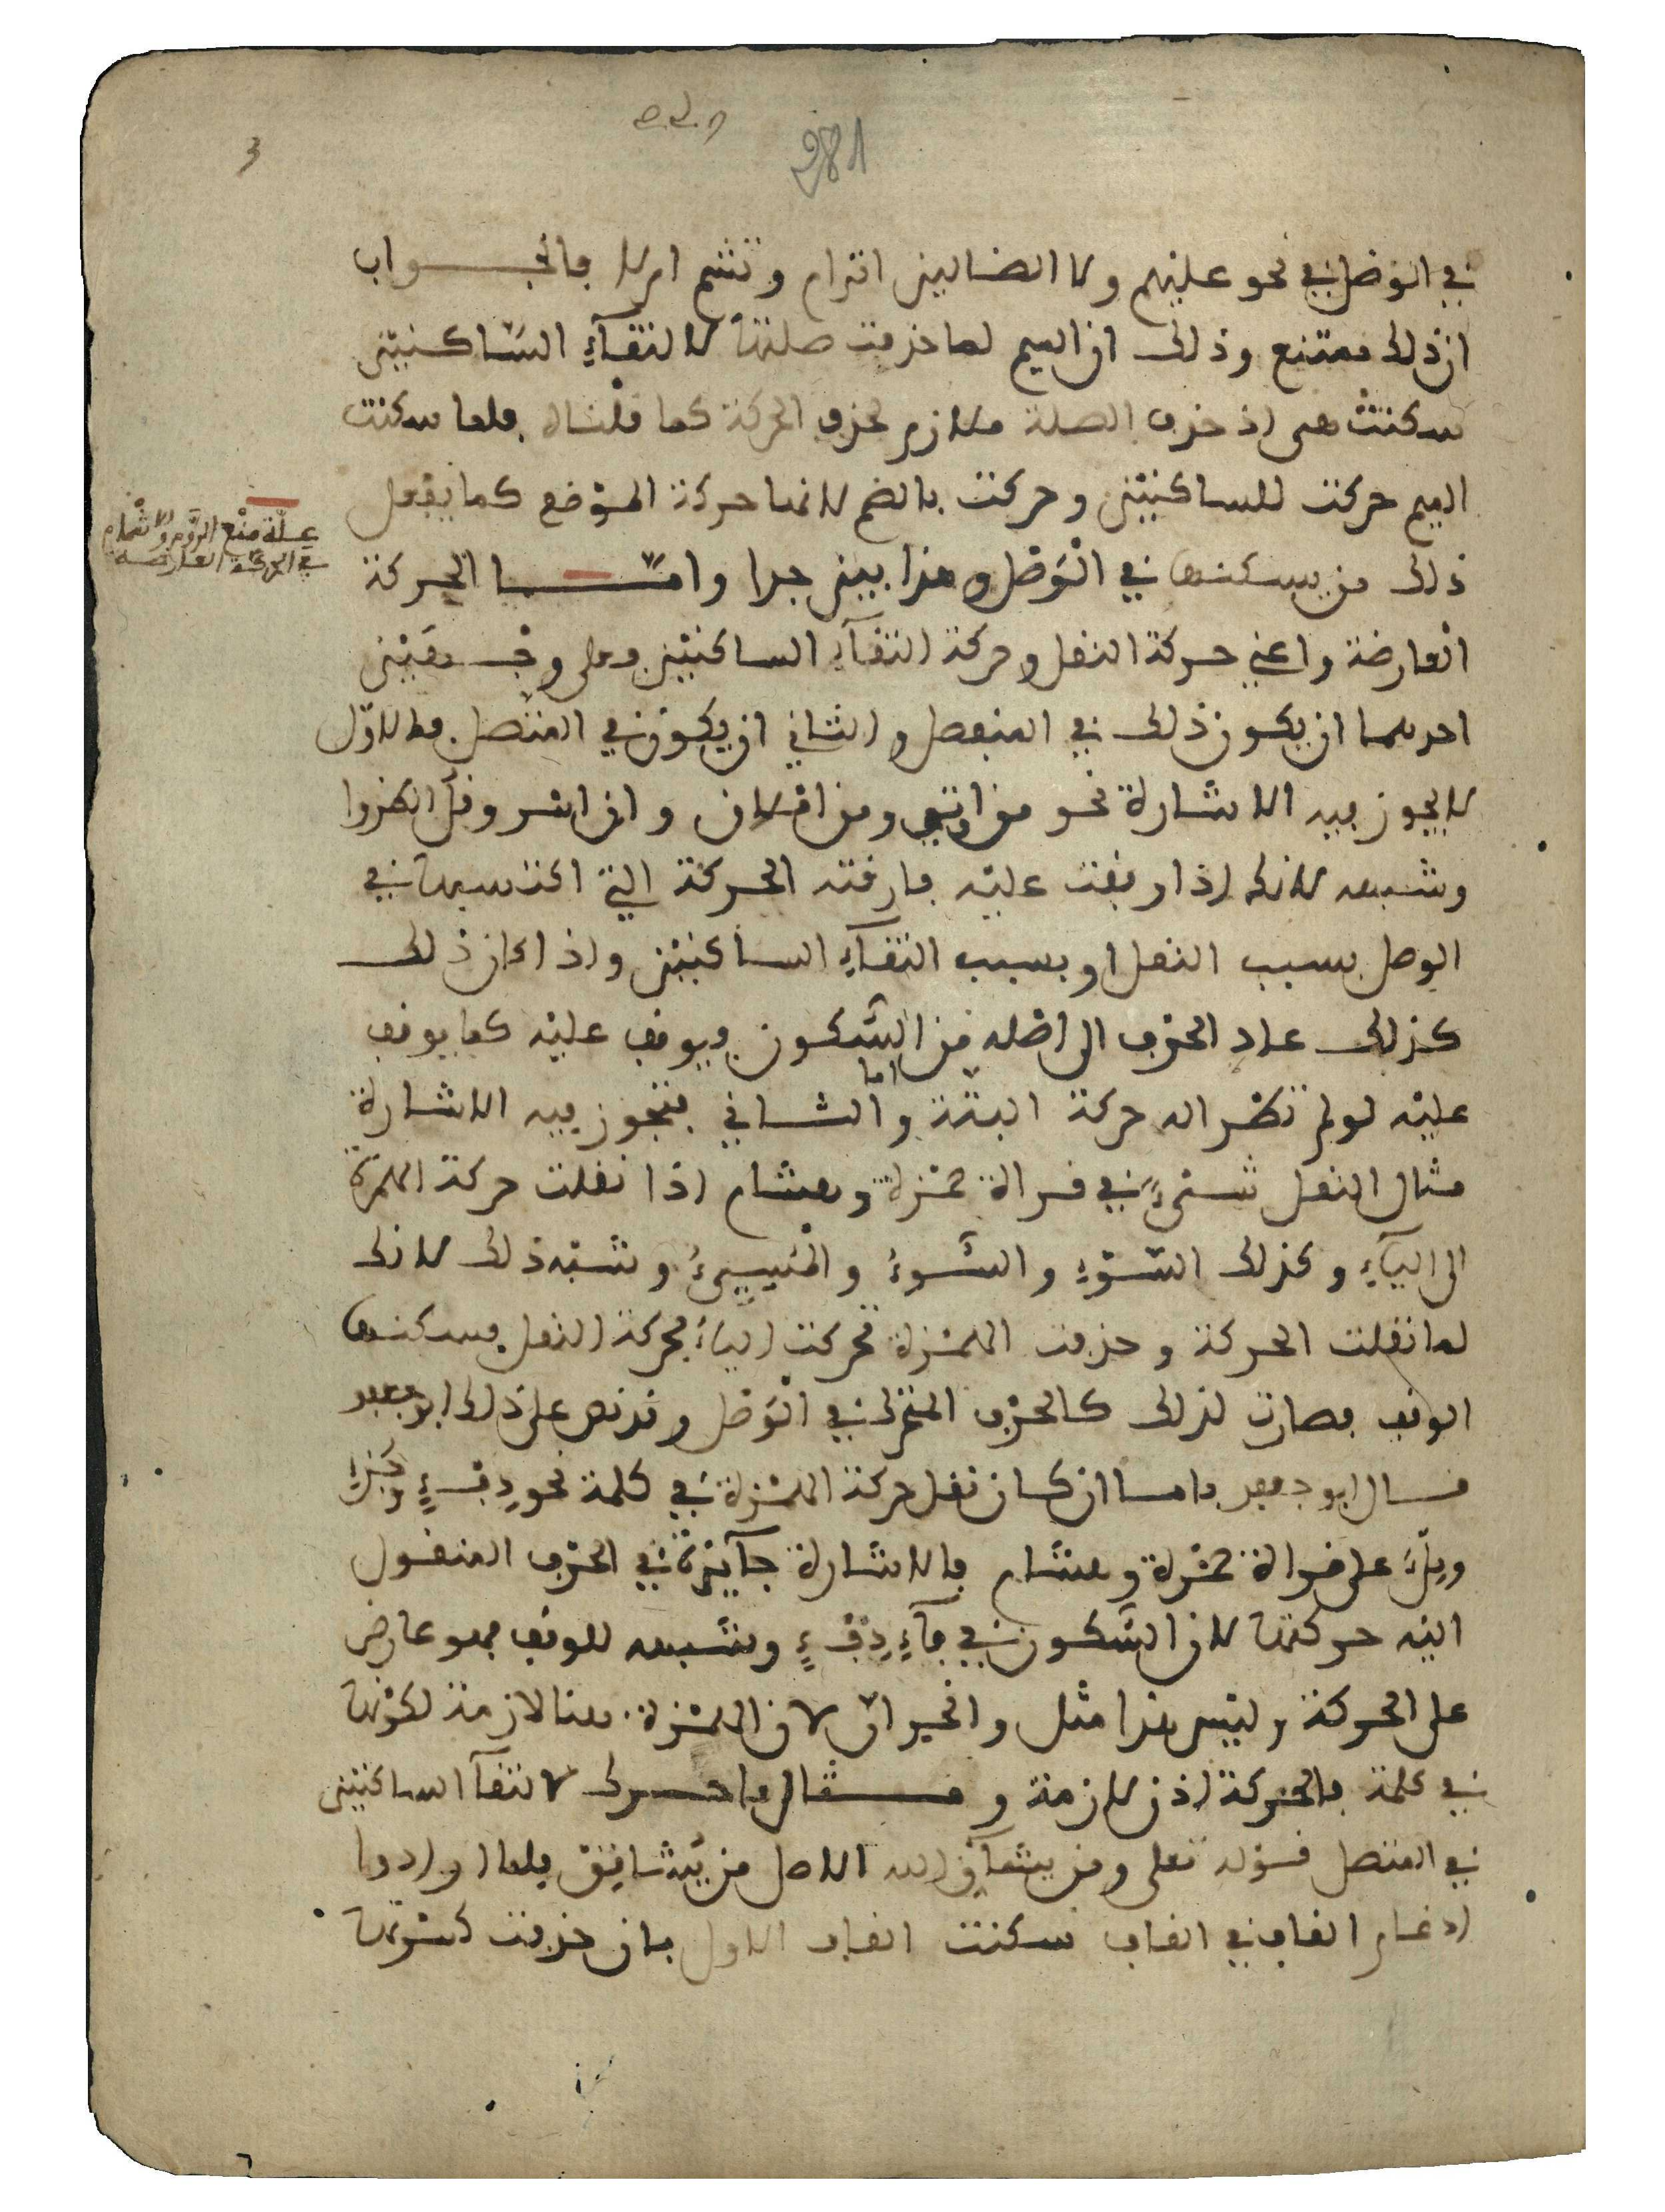 281
3
في الوصل في نحو عليهم ولا الضالين اترام وتشم ام لا فالجـــواب
ان ذلك ممتنع وذلك ان الميم لما حذفت صلتها لالتقآءِ السّاكنيْن
سكنتْ هي اذ حذف الصلة ملازم لحذف الحركة كما قلْناه فلما سكنت
الميم حركت للساكنيْن وحركت بالضم لانها حركة الموْضع كما يفعل
ذلك من يسكنها في الْوَصْل وهذا بين جدا وامّـــا الحركة
العارضة واعني حركة النقل وحركة التقآءِ الساكنيْن فعلى وجْـهَيْن
احدهما ان يكون ذلك في المنفصل والثاني ان يكون في المتّصل فالاوّل
لا يجوز فيه الاشارة نحو من اوتي ومن اسْلاف وان امْـر وقلُ انظروا
وشبهه لانك اذا وقفت عليْه فارقته الحركة التي اكتسبها في
الوصل بسبب النقل او بسبب التقآءِ الساكنيْن واذا كان ذلك
كذلك عاد الحرف الى اصْله من السّكون فيوقف عليْه كما يوقف
عليْه لو لم تظهر اله حركة البتّة واما الثاني فتجوز فيه الاشارة
مثال النقل شيْءٍ في قراءة حمْزة وهشام اذا نقلت حركة الهمْزة
الى اليآءِ وكذلك السّوْءِ والسُّوءُ والمُسِيءُ وشبْه ذلك لانك
لما نقلت الحركة وحذفت الهمْزة تحركت اليآءُ بحركة النقل فسكنها
الوقف فصارت لذلك كالحرْف المتحرك في الْوَصْل وقد نص على ذلك ابو جعفر
قال ابو جعفر فاما ان كان نقل حركة الهمْزة في كلمة نحو دِفْءٍ وجُزْءٍ
ومِلْءُ على قراءة حمْزة وهشام فالاشارة جآئزة في الحرْف المنقول
اليْه حركتها لان السّكون في فآءِ دِفْءٍ وشبهه للوقف فهو عارض
على الحركة وليْس هذا مثل وانحر انّ لان الهمْزة هنا لازمة لكوْنها
في كلمة فالحركة اذن لازمة ومـــثال ما حـرك لالتقآ الساكنيْن
في المتصل قوْله تعلى ومن يشآقِّ الله الاصل من يُشاقِقْ فلما ارادوا
ادغام القاف في القاف سكنت القاف الاول بان حذفت كسْرتها
علّة منْع الرَّوْم والاشْمام
في الحركة العارضة